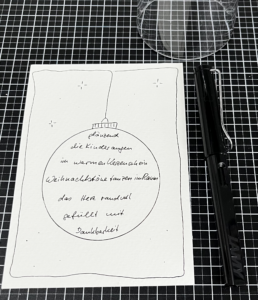 glänzend
die Kinderaugen
im warmen Kerzenschein
Weihnachtsdüfte tanzen im Raum
das Herz randvoll
gefüllt mit
Dankbarkeit